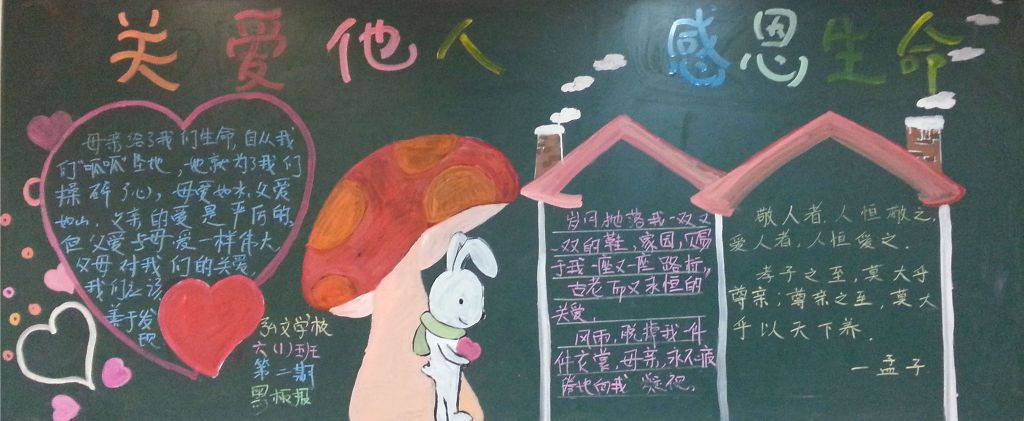 关爱他人 感恩生命
母亲给了我们生命,自从我
们“呱呱”坠地,她就为了我们
操碎了心,母爱如水,父爱
如山,父亲的爱是严厉的
但父爱与母爱一样伟大
父母对我们的关爱,
我们应该
善于发
现
弘文学校
六(1)班
第二期
黑板报
岁月抛落我一双又
一双的鞋,家园,又
于我一座又一座路标,
古老而又永恒的
关爱,
风雨,脱掉我一件
件衣裳,母亲,永不疲
倦地向我凝视.
敬人者,人恒敬之,
爱人者,人恒爱之.
孝子之至,莫大乎
尊亲;尊亲之至,莫大
乎以天下养.
一孟子